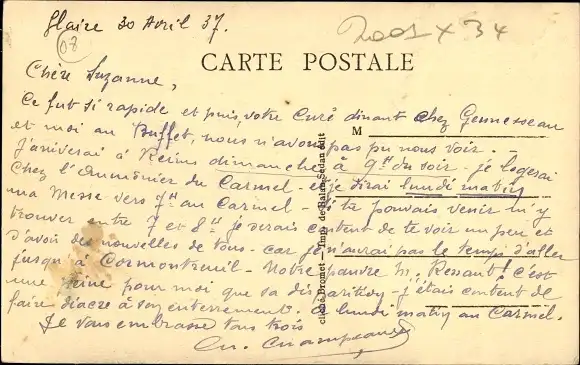 Glaire 30 Avril 37.
08
2001 x 34
CARTE POSTALE
Chère Suzanne,
Ce fut si rapide et puis, votre Curé dinant chez Gennesseau
M
et moi au Buffet, nous n'avons pas pu nous voir. -
J'arriverai à Reims dimanche à 9h du soir - je logerai
chez l'Aumônier du Carmel - et je dirai lundi matin
ma Messe vers 7h au Carmel. Si tu pouvais venir m'y
trouver entre 7 et 8h je serais content de te voir un peu et
d'avoir des nouvelles de tous - car je n'aurai pas le temps d'aller
jusqu'à Cormontreuil - Notre pauvre M. Ressant! C'est
une peine pour moi que sa disparition - j'étais content de
faire diacre à son enterrement. à lundi matin au Carmel.
Je vous embrasse tous trois
Cliché Fromet - Imp. de Balan-Sedan